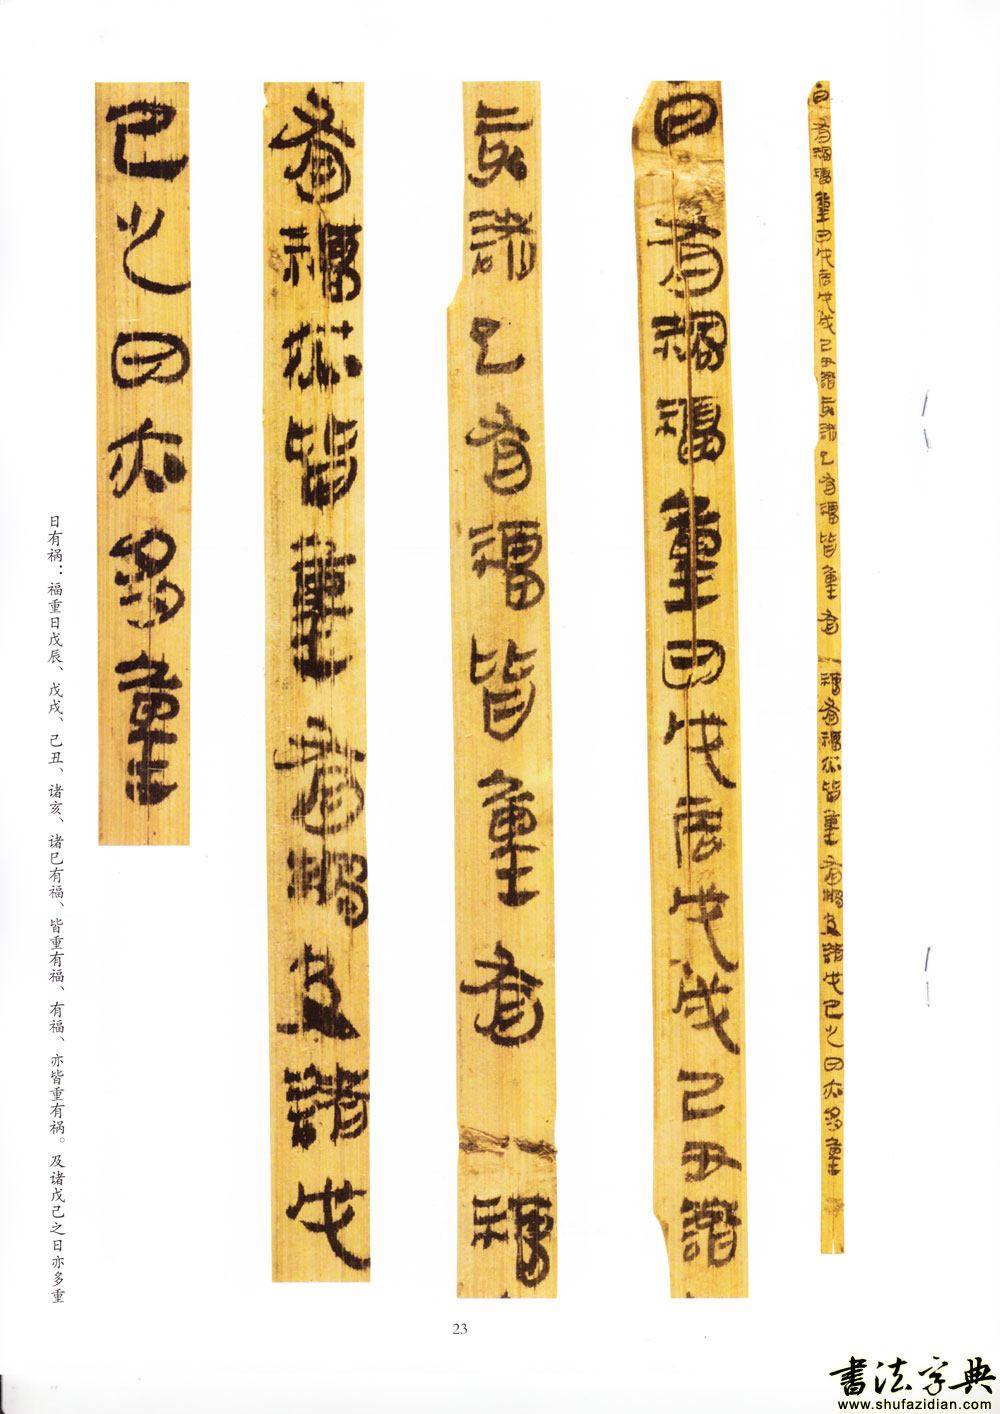 日有祸福重日戊辰戊戌己丑诸
亥诸巳有福皆重有福
有福亦皆重有祸及诸戊
己之日亦多重
日有祸：福重日戊辰、戊戌、己丑、诸亥、诸巳有福、皆重有福、有福、亦皆重有祸。及诸戊己之日亦多重
23
书法字典
www.shufazidian.com